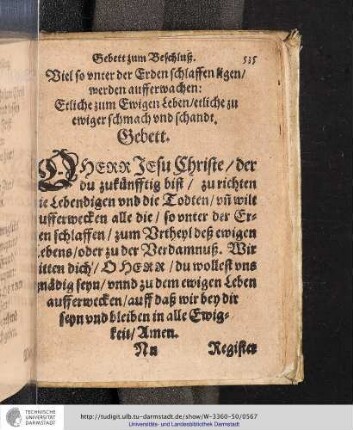 Gebett zum Beschluß. 535
Viel so vnter der Erden schlaffen ligen/
werden aufferwachen:
Etliche zum Ewigen Leben/etliche zu
ewiger schmach vnd schandt.
Gebett.
O HERR JEsu Christe/der
du zukünfftig bist / zu richten
ie Lebendigen vnd die Todten/vñ wilt
ufferwecken alle die/so vnter der Er-
en schlaffen/zum Vrtheyl deß ewigen
ebens/oder zu der Verdamnuß. Wir
itten dich/O HERR/du wollest vns
nädig seyn/vnnd zu dem ewigen Leben
aufferwecken/auff daß wir bey dir
seyn vnd bleiben in alle Ewig-
keit/Amen.
Nn Register
TECHNISCHE
UNIVERSITÄT
DARMSTADT
http://tudigit.ulb.tu-darmstadt.de/show/W-3360-50/0567
Universitäts- und Landesbibliothek Darmstadt